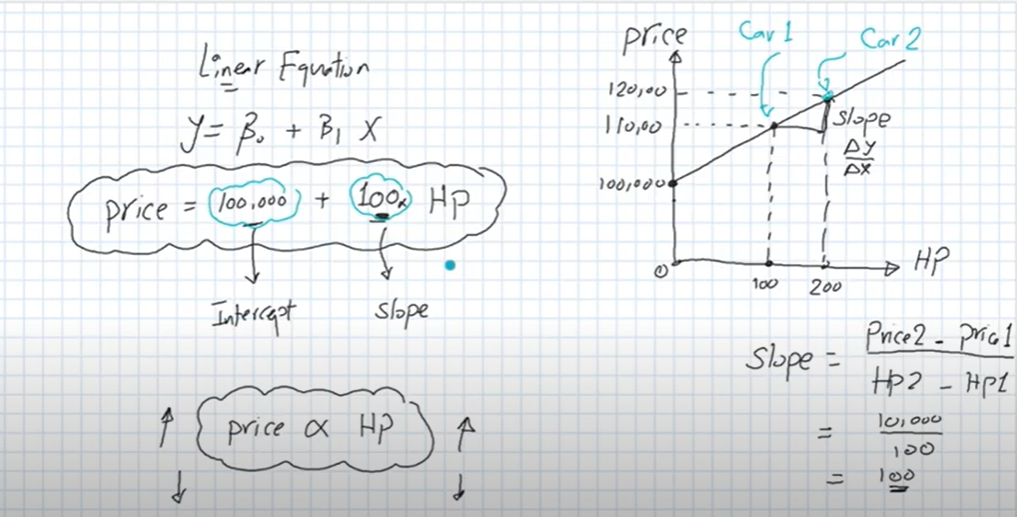 Linear Equation
y = β₀ + β₁ X
price = 100,000 + 100x HP
Intercept
Slope
price ∝ HP
price
Car 1
Car 2
120,00
110,00
100,000
slope
ΔY
ΔX
0
100
200
HP
Slope = Price2 - pric1
HP2 - HP1
= 10,000
100
= 100